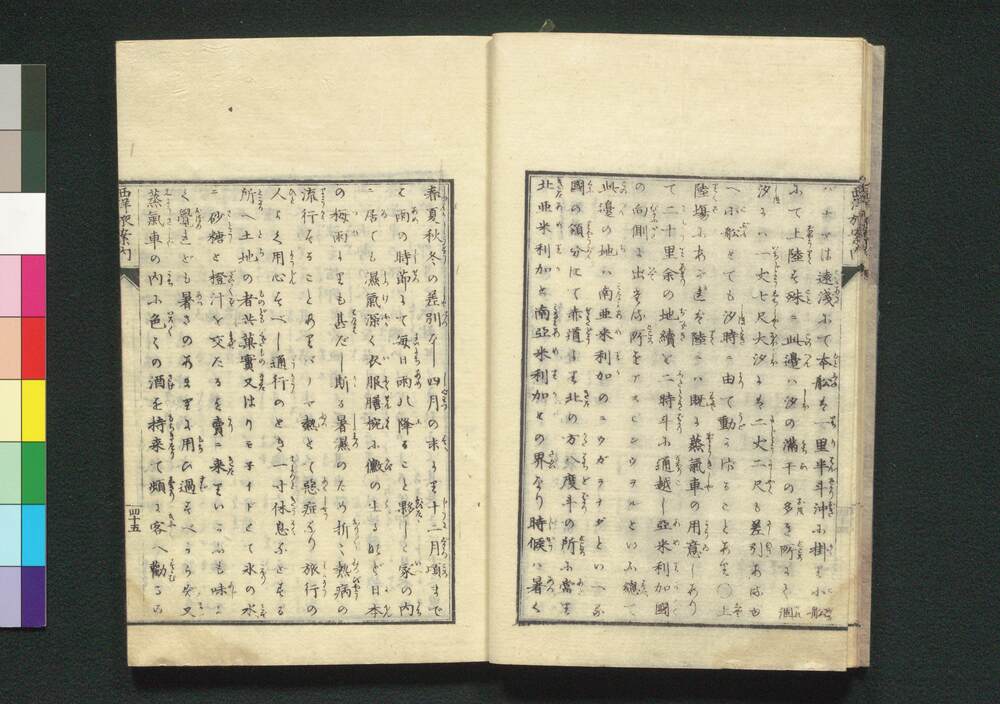 ハナマは遠浅にて本船を一里半斗沖に掛る小船
にて上陸も殊に此邉ハ汐の滿干の多き所にて涸
汐にハ一丈七尺大汐にも二丈二尺も差引ある由
へ小船とても汐時に由て動ことあり○上
陸塲にあがれバ陸にハ既に蒸氣車の用意しあり
て二十里余の地續を二時斗に通越し亜米利加國
の向側に出る此所をアスピンウヲルといふ總て
此邉の地ハ南亜米利加のニウガラナダといへる
國の領分にて赤道より北の方八度斗の所に當る
北亜米利加と南亜米利加との界なり時候ハ暑く
西洋旅案内
春夏秋冬の差別なし四月の末より十二月頃まで
を雨の時節にて毎日雨の降ること夥しく家の内
に居ても濕氣深く衣服膳椀に黴の生るほど日本
の梅雨よりも甚だし斯る暑濕のため折々熱病の
流行することありハナマ熱とて惡症なり旅行の
人よく用心すべし通行のとき一寸休息などする
所へ土地の者共菓實又はリモネイドとて氷の水
に砂糖と橙汁を交たるを賣に来るいかにも味よ
く覺れども暑さのあまりに用ひ過すべからず又
蒸氣車の内に色々の酒を持来て頻に客へ勸るも
西洋旅案内
四十五